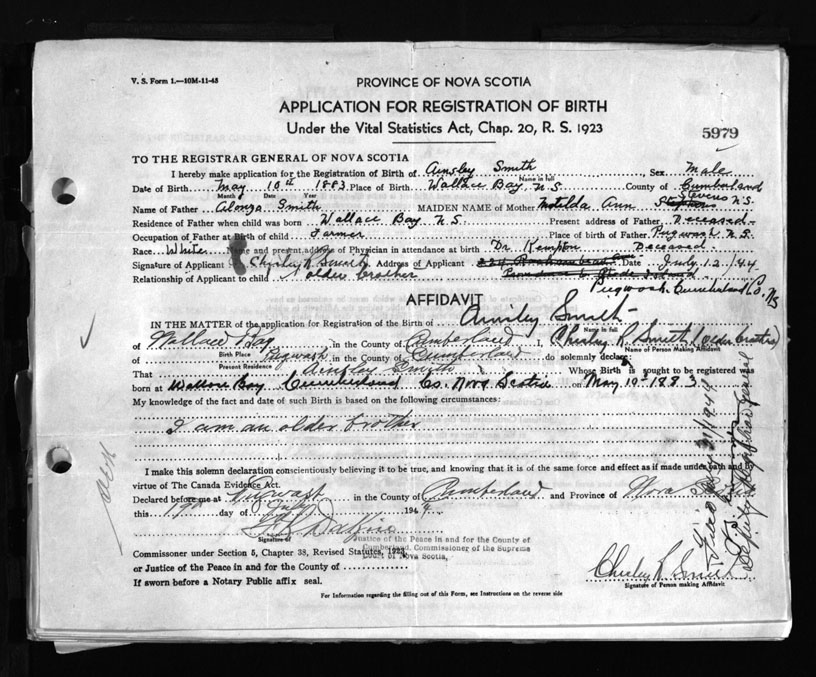 V. S. Form 1.—10M-11-43
PROVINCE OF NOVA SCOTIA
APPLICATION FOR REGISTRATION OF BIRTH
Under the Vital Statistics Act, Chap. 20, R. S. 1923
5979
TO THE REGISTRAR GENERAL OF NOVA SCOTIA
I hereby make application for the Registration of Birth of Ainsley Smith Sex Male
Name in full
Date of Birth May 10th 1883 Place of Birth Wallace Bay, N.S. County of Cumberland
Month Date Year
Stevens N.S.
Name of Father Alonza Smith MAIDEN NAME of Mother Matilda Ann
Residence of Father when child was born Wallace Bay N.S. Present address of Father Deceased
Occupation of Father at Birth of child Farmer Place of Birth of Father Pugwash N.S.
Race White Name and present address of Physician in attendance at birth Dr. Kempton Deceased
Signature of Applicant Chirley R Smith Address of Applicant Date July 12/44
Relationship of Applicant to child older brother
Pugwash Cumberland Co. NS
AFFIDAVIT
IN THE MATTER of the application for Registration of the Birth of Ainsley Smith
Name in full
of Wallace Bay in the County of Cumberland I, Chirley R Smith (older brother)
Birth Place Name of Person Making Affidavit
of Pugwash in the County of Cumberland do solemnly declare:
Present Residence
That Ainsley Smith Whose Birth is sought to be registered was
born at Wallace Bay Cumberland Co. Nova Scotia on May 10th 1883
My knowledge of the fact and date of such Birth is based on the following circumstances:
I am an older brother
I make this solemn declaration conscientiously believing it to be true, and knowing that it is of the same force and effect as if made under oath and by
virtue of The Canada Evidence Act.
Declared before me at Pugwash in the County of Cumberland and Province of Nova Scotia
this day of July 1944
Signature of
Justice of the Peace in and for the County of
Cumberland, Commissioner of the Supreme
Court of Nova Scotia,
Commissioner under Section 5, Chapter 38, Revised Statutes, 1923
or Justice of the Peace in and for the County of
If sworn before a Notary Public affix seal.
Chirley R Smith
Signature of Person making Affidavit
For Information regarding the filling out of this Form, see Instructions on the reverse side
Deputy Registrar General